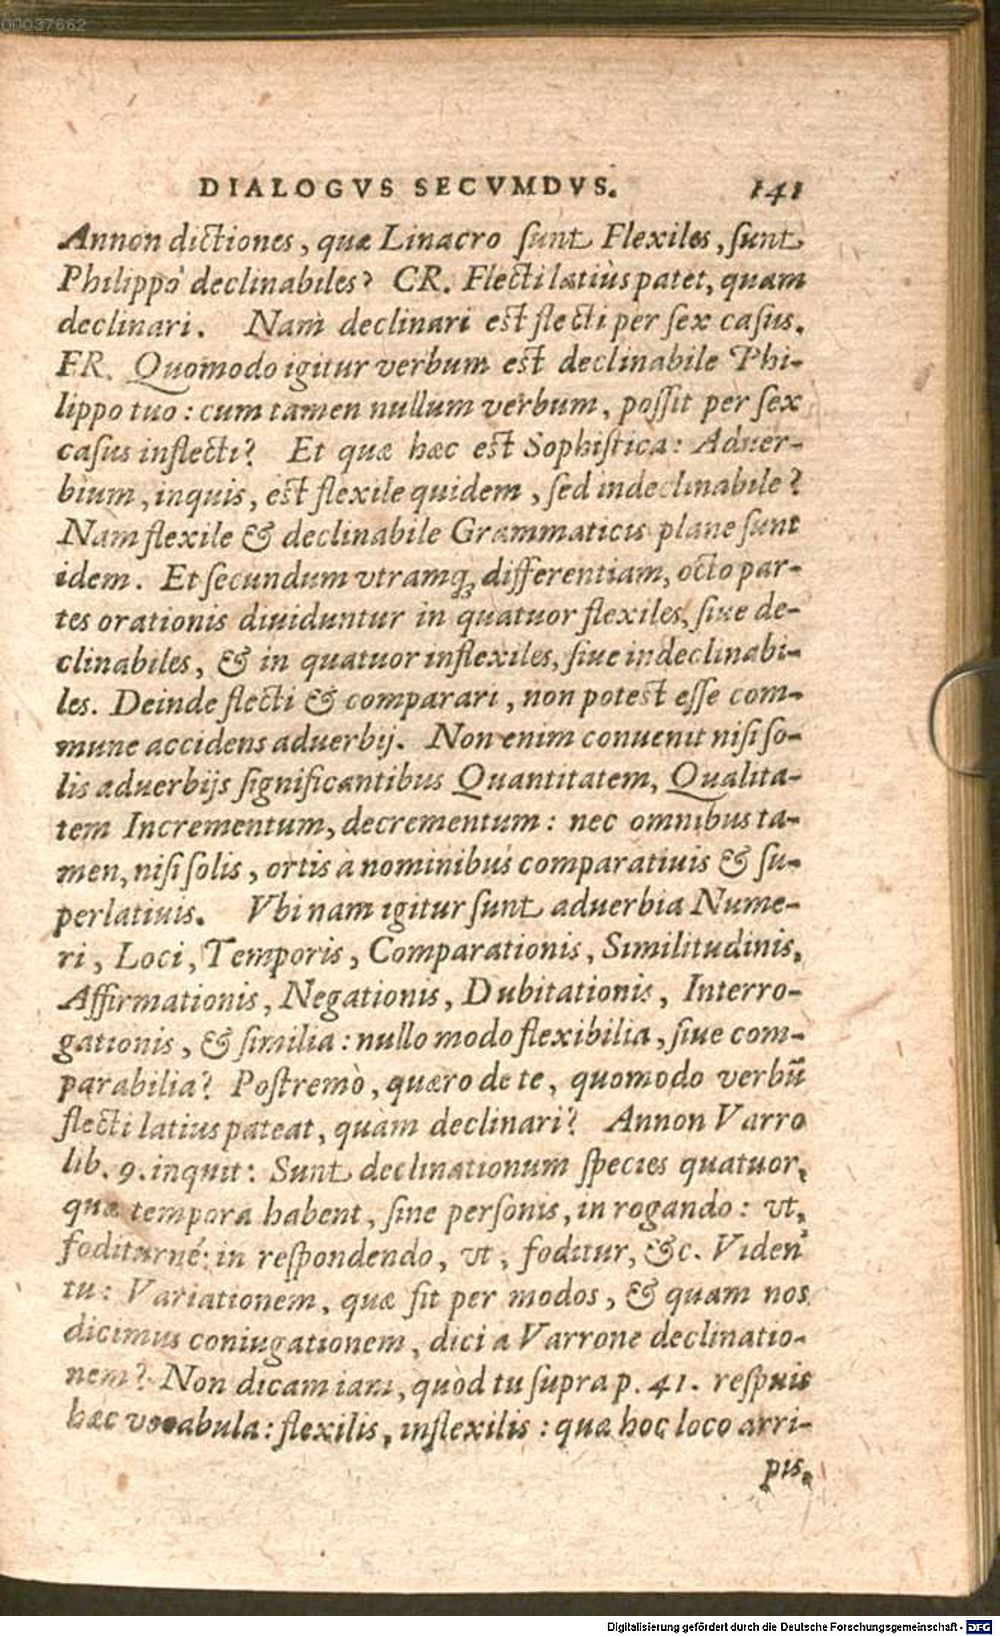 00037662
DIALOGVS SECVMDVS. 141
Annon dictiones, quæ Linacro ſunt Flexiles, ſunt
Philippo declinabiles? CR. Flecti latiùs patet, quam
declinari. Nam declinari eſt flecti per ſex caſus.
FR. Quomodo igitur verbum eſt declinabile Phi-
lippo tuo: cum tamen nullum verbum, poſſit per ſex
caſus inflecti? Et quæ hæc eſt Sophiſtica: Aduer-
bium, inquis, eſt flexile quidem, ſed indeclinabile?
Nam flexile & declinabile Grammaticis plane ſunt
idem. Et ſecundum vtramq; differentiam, octo par-
tes orationis diuiduntur in quatuor flexiles, ſiue de-
clinabiles, & in quatuor inflexiles, ſiue indeclinabi-
les. Deinde flecti & comparari, non poteſt eſſe com-
mune accidens aduerbij. Non enim conuenit niſi ſo-
lis aduerbijs ſignificantibus Quantitatem, Qualita-
tem Incrementum, decrementum: nec omnibus ta-
men, niſi ſolis, ortis à nominibus comparatiuis & ſu-
perlatiuis. Vbi nam igitur ſunt aduerbia Nume-
ri, Loci, Temporis, Comparationis, Similitudinis,
Affirmationis, Negationis, Dubitationis, Interro-
gationis, & ſimilia: nullo modo flexibilia, ſiue com-
parabilia? Poſtremò, quæro de te, quomodo verbũ
flecti latius pateat, quàm declinari? Annon Varro
lib. 9. inquit: Sunt declinationum ſpecies quatuor,
quæ tempora habent, ſine perſonis, in rogando: vt,
foditurné: in reſpondendo, vt, foditur, &c. Viden'
tu: Variationem, quæ fit per modos, & quam nos
dicimus coniugationem, dici a Varrone declinatio-
nem? Non dicam iam, quòd tu ſupra p. 41. reſpuis
hæc vocabula: flexilis, inflexilis: quæ hoc loco arri-
pis,
Digitalisierung gefördert durch die Deutsche Forschungsgemeinschaft - DFG